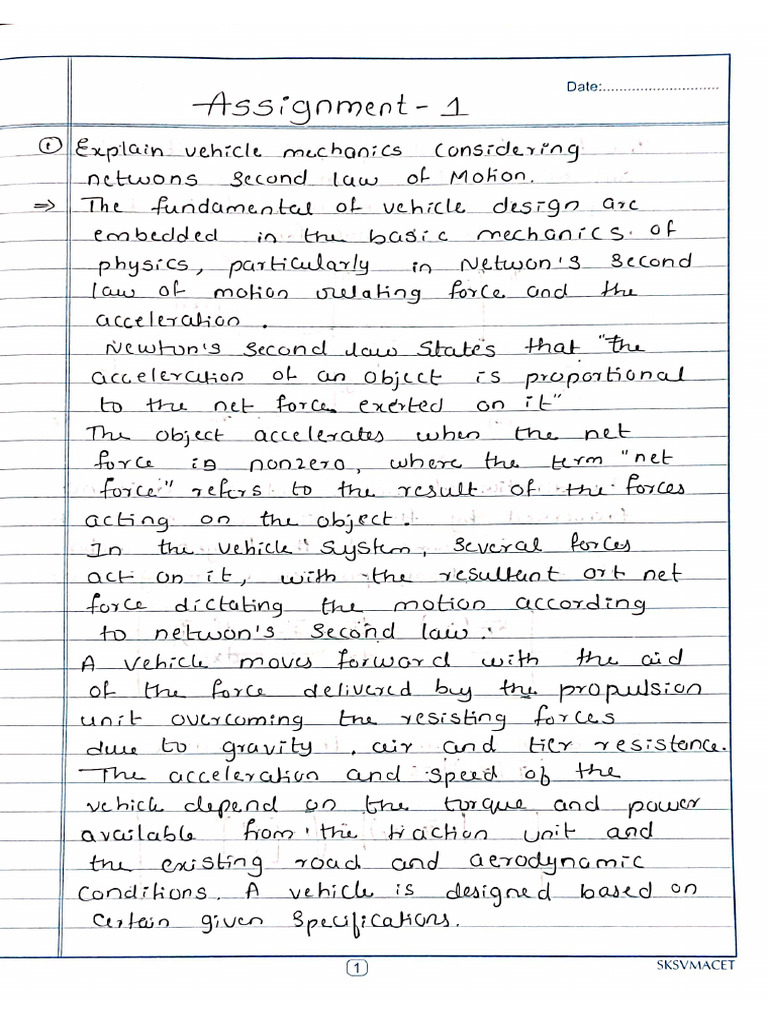 Date:.............................
Assignment - 1
① Explain vehicle mechanics considering
netwons second law of Motion.
⇒ The fundamental of vehicle design are
embedded in the basic mechanics of
physics, particularly in Netwon's second
law of motion relating force and the
acceleration.
Newton's second law states that "the
acceleration of an object is proportional
to the net force exerted on it"
The object accelerates when the net
force is nonzero, where the term "net
force" refers to the result of the forces
acting on the object.
In the vehicle system, several forces
act on it, with the resultant ort net
force dictating the motion according
to netwon's second law.
A vehicle moves forward with the aid
of the force delivered by the propulsion
unit overcoming the resisting forces
due to gravity, air and tier resistence.
The acceleration and speed of the
vehicle depend on the torque and power
available from the traction unit and
the existing road and aerodynamic
conditions. A vehicle is designed based on
certain given specifications.
1
SKSVMACET